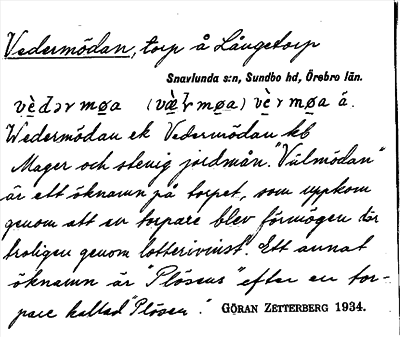 Vedermödan, torp å Långetorp
Snavlunda s:n, Sundbo hd, Örebro län.
vèdər møa (væ̀r møa) vè r møa ä.
Wedermödan ek Vedermödan kb
Mager och stenig jordmån. "Välmödan"
är ett öknamn på torpet, som uppkom
genom att en torpare blev förmögen tör
troligen genom lotterivinst. Ett annat
öknamn är "Plösens" efter en tor-
pare kallad "Plösen". GÖRAN ZETTERBERG 1934.